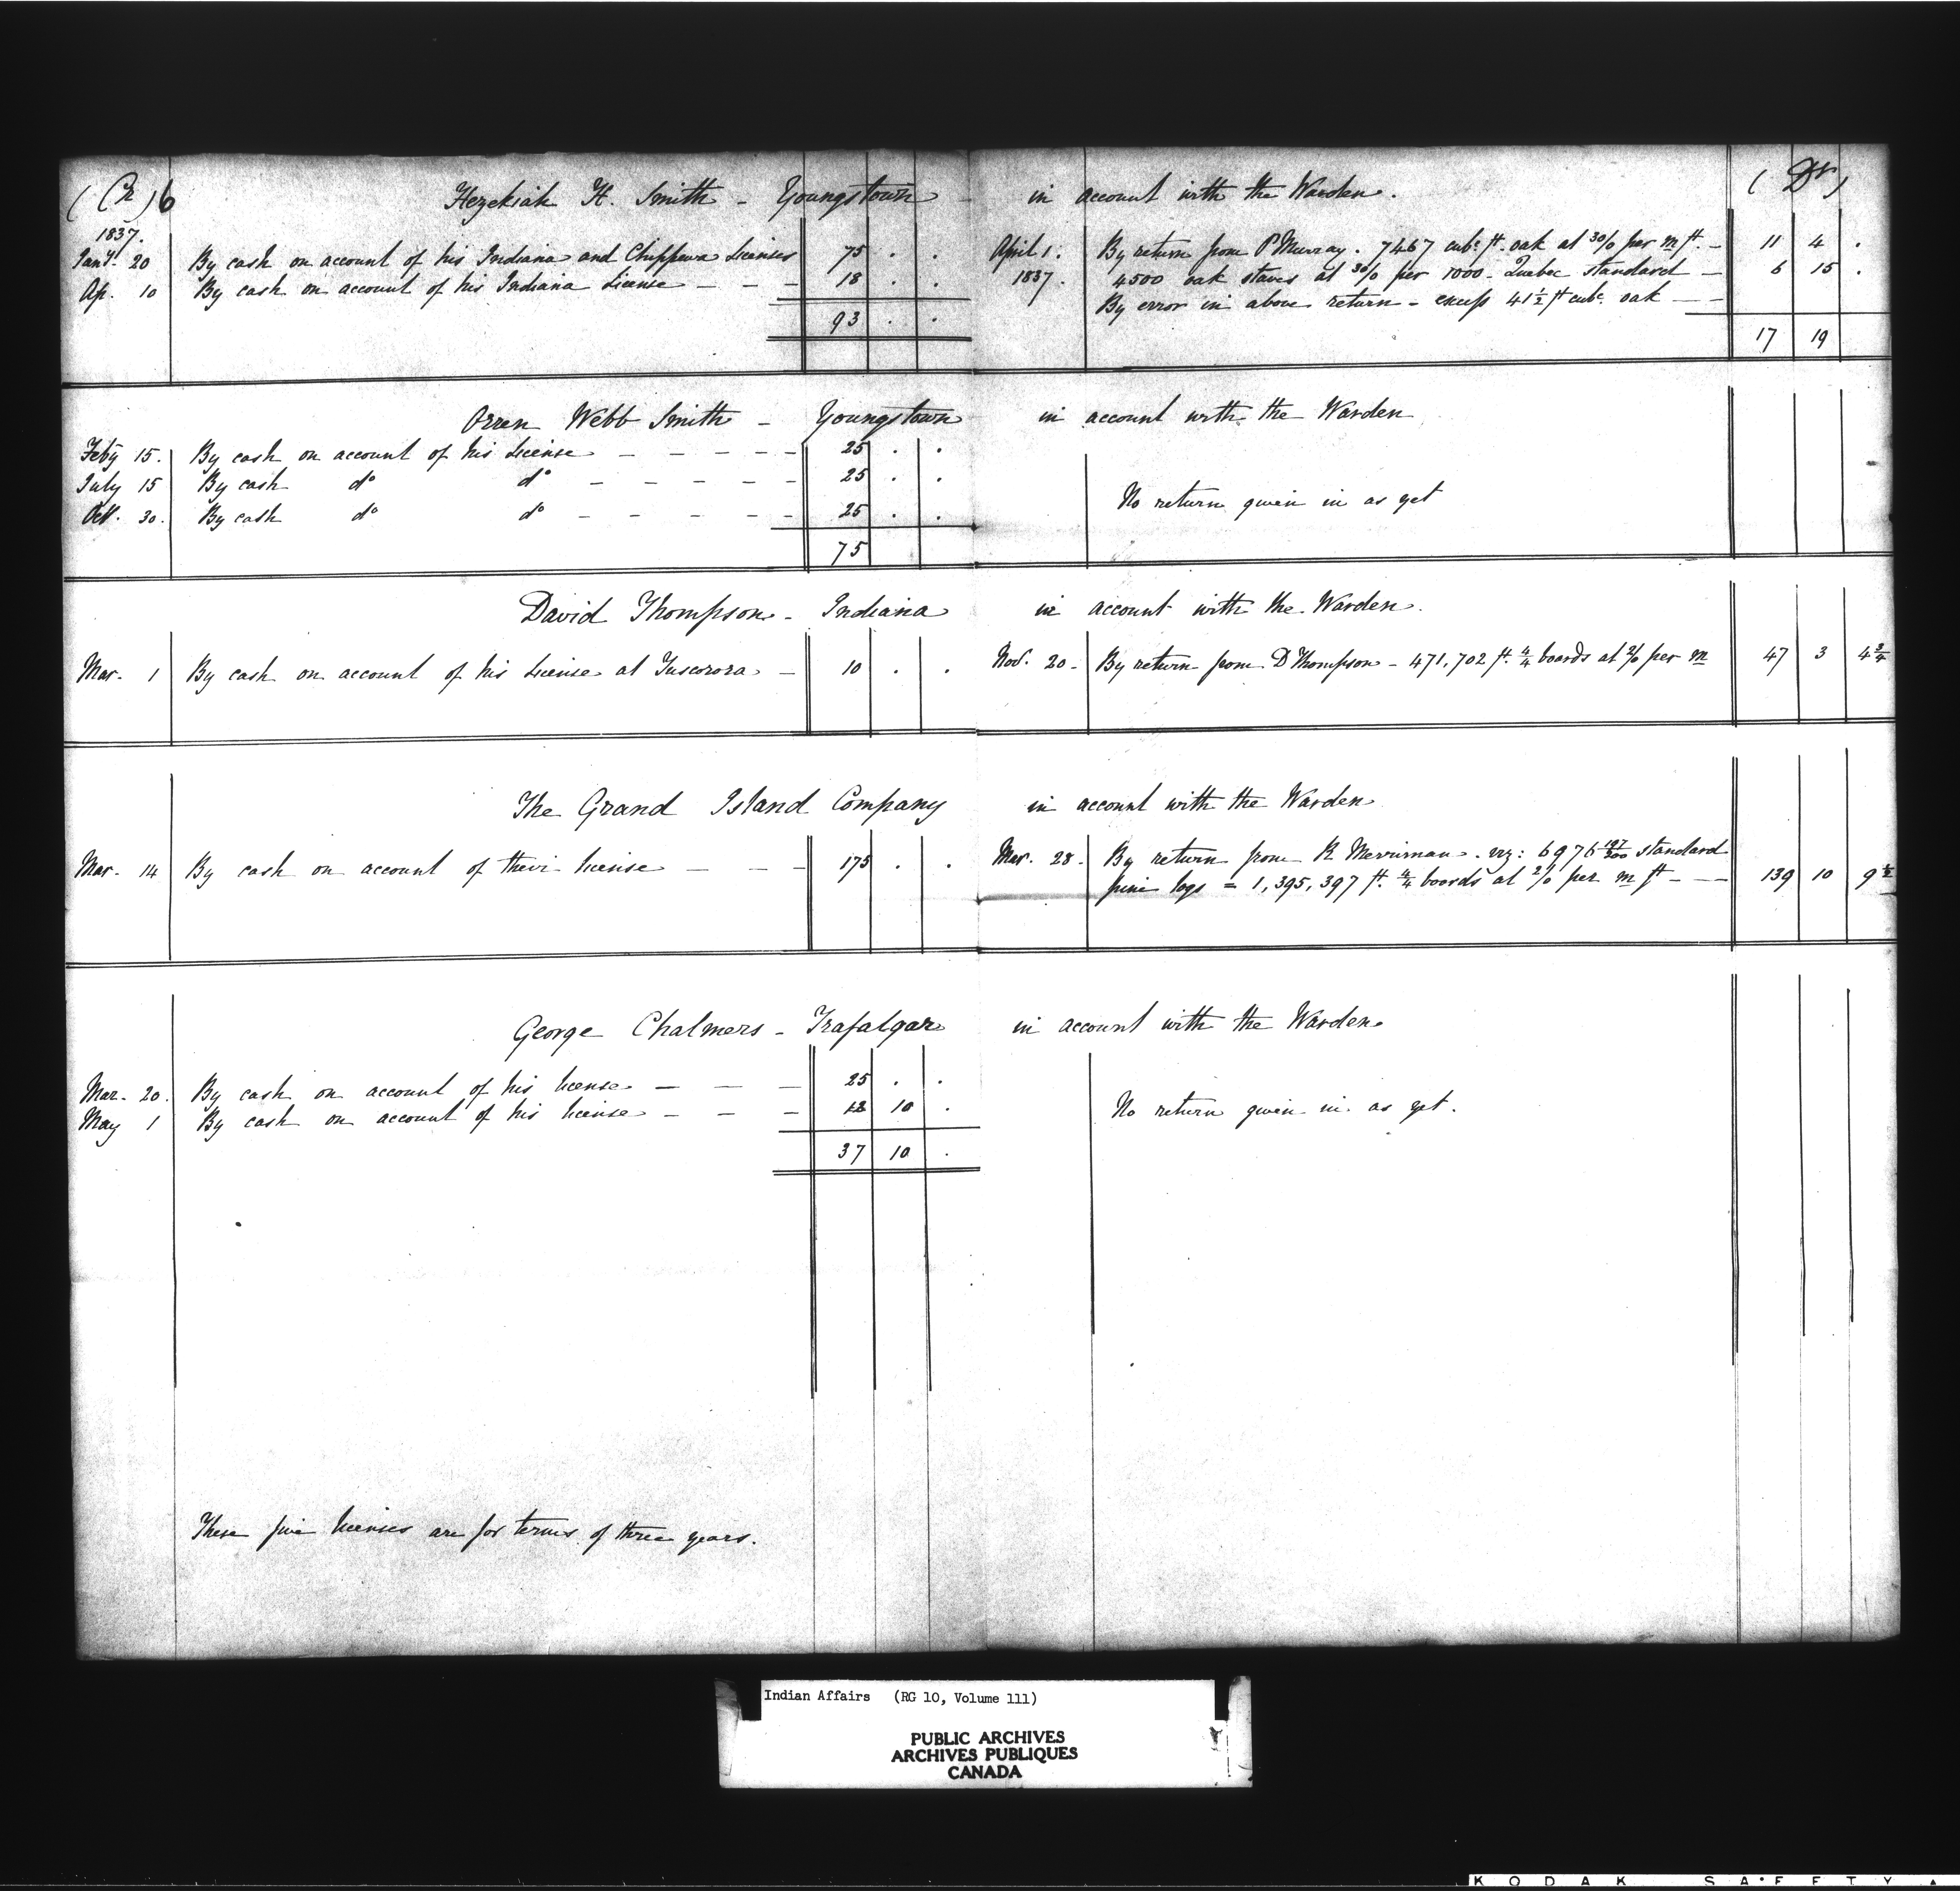 (Cr) 6 Hezekiah H. Smith - Youngstown in account with the Warden. (Dr)
1837.
Jany. 20 By cash on account of his Indiana and Chippewa Licenses 75 . . April 1. By return from P Murray. 7467 cubc ft. oak at 30/ per m ft. - 11 4 .
Ap. 10 By cash on account of his Indiana License - - - 18 . . 1837. 4500 oak staves at 30/ per 1000 - Quebec standard - 6 15 .
By error in above return - excess 41½ ft cubc. oak - -
93 . . 17 19
Orren Webb Smith - Youngstown in account with the Warden
Feby 15. By cash on account of his License - - - - - 25 . .
July 15 By cash do do - - - - - 25 . .
Oct. 30. By cash do do - - - - - 25 . . No return given in as yet
75
David Thompson - Indiana in account with the Warden.
Mar. 1 By cash on account of his License at Tuscorora - 10 . . Nov. 20 - By return from D Thompson - 471,702 ft. 4/4 boards at 2/ per m 47 3 4¾
The Grand Island Company in account with the Warden
Mar. 14 By cash on account of their license - - - 175 . . Mar. 28. By return from R Merriman. viz: 6976 197/200 standard
pine logs = 1,395,397 ft. 4/4 boards at 2/ per m ft - - - 139 10 9½
George Chalmers - Trafalgar in account with the Warden.
Mar. 20. By cash on account of his license - - - 25 . .
May 1 By cash on account of his license - - - 12 10 . No return given in as yet.
37 10 .
These five licenses are for terms of three years.
Indian Affairs (RG 10, Volume 111)
PUBLIC ARCHIVES
ARCHIVES PUBLIQUES
CANADA
KODAK SAFETY